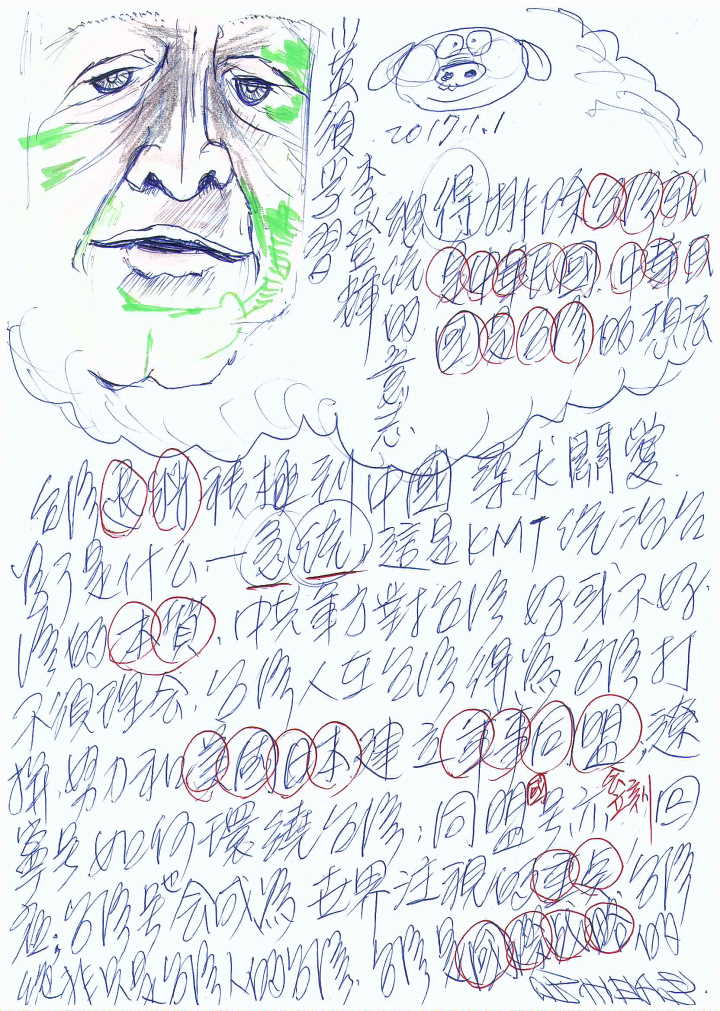 2017.1.1
李登輝
總統的意志
得排除台灣就
是中華民國.中華民
國是台灣的想法
台灣 積極到中國尋求關愛.
為了是什么.一急統,這是KMT統治台
灣的本質.中共軍方對台灣好或不好.
不須理会.台灣人在台灣得為台灣打
拼.努力和美國日本建立軍事同盟.遼
寧号如何環繞台灣;同盟國号亦会立刻回
.台灣是也会成為世界注視的重点.台灣
台灣人的台灣.台灣是 的